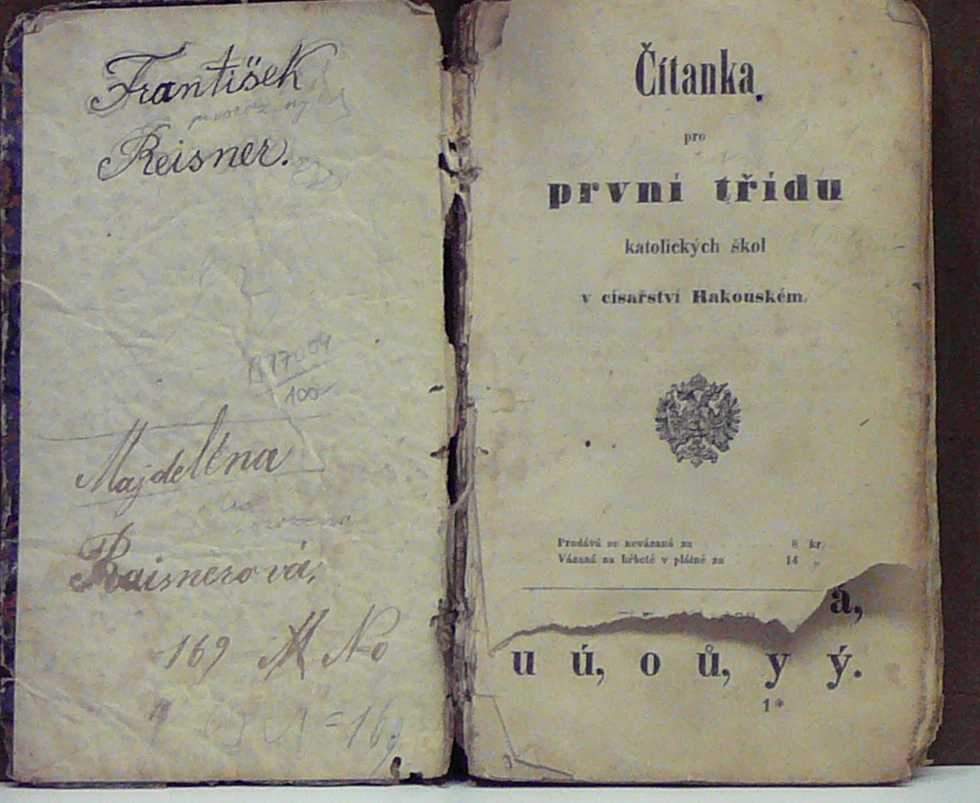 František
Reisner.
100
Majdeléna
Raisnerová,
169 No
Čítanka
pro
první třídu
katolických škol
v císařství Rakouském.
Prodává se nevázaná za 8 kr.
Vázaná na hřbetě v plátně za 14 „
a,
u ú, o ů, y ý.
1*